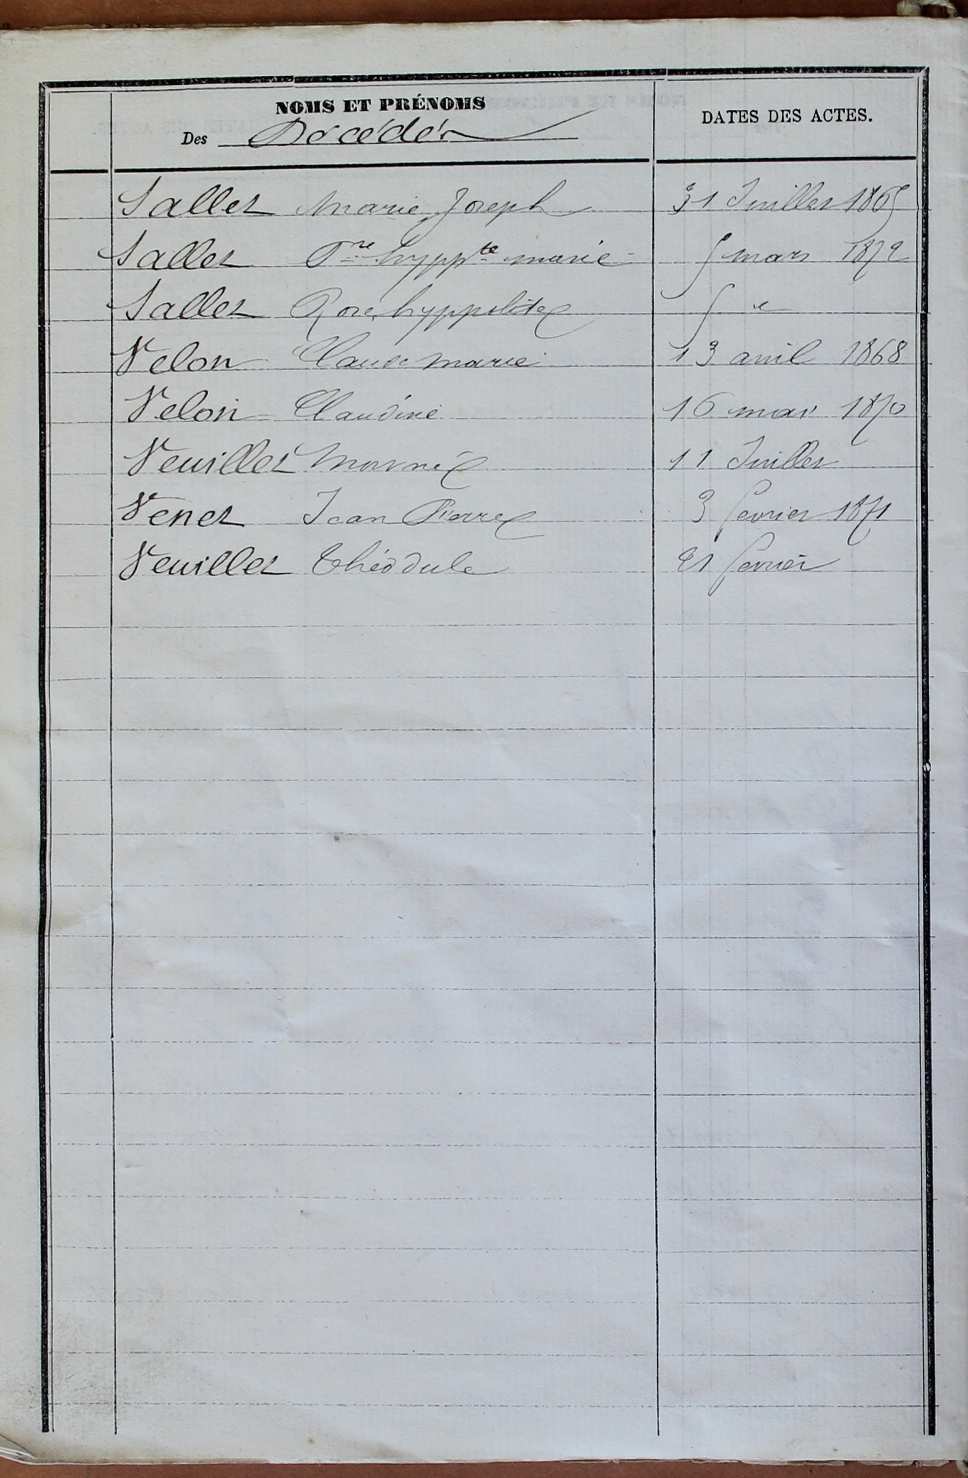 NOMS ET PRÉNOMS
Des Décédés
DATES DES ACTES.
Sallet Marie Joseph 31 Juillet 1865
Sallet Pre hyppte marie 5 mars 1872
Sallet Rose hyppolite 5 e
Velon Claude marie 13 avril 1868
Velon Claudine 16 mai 1870
Veuillet 11 Juillet
Venet Jean Pierre 3 fevrier 1871
Veuillet Théodule 21 fevrier